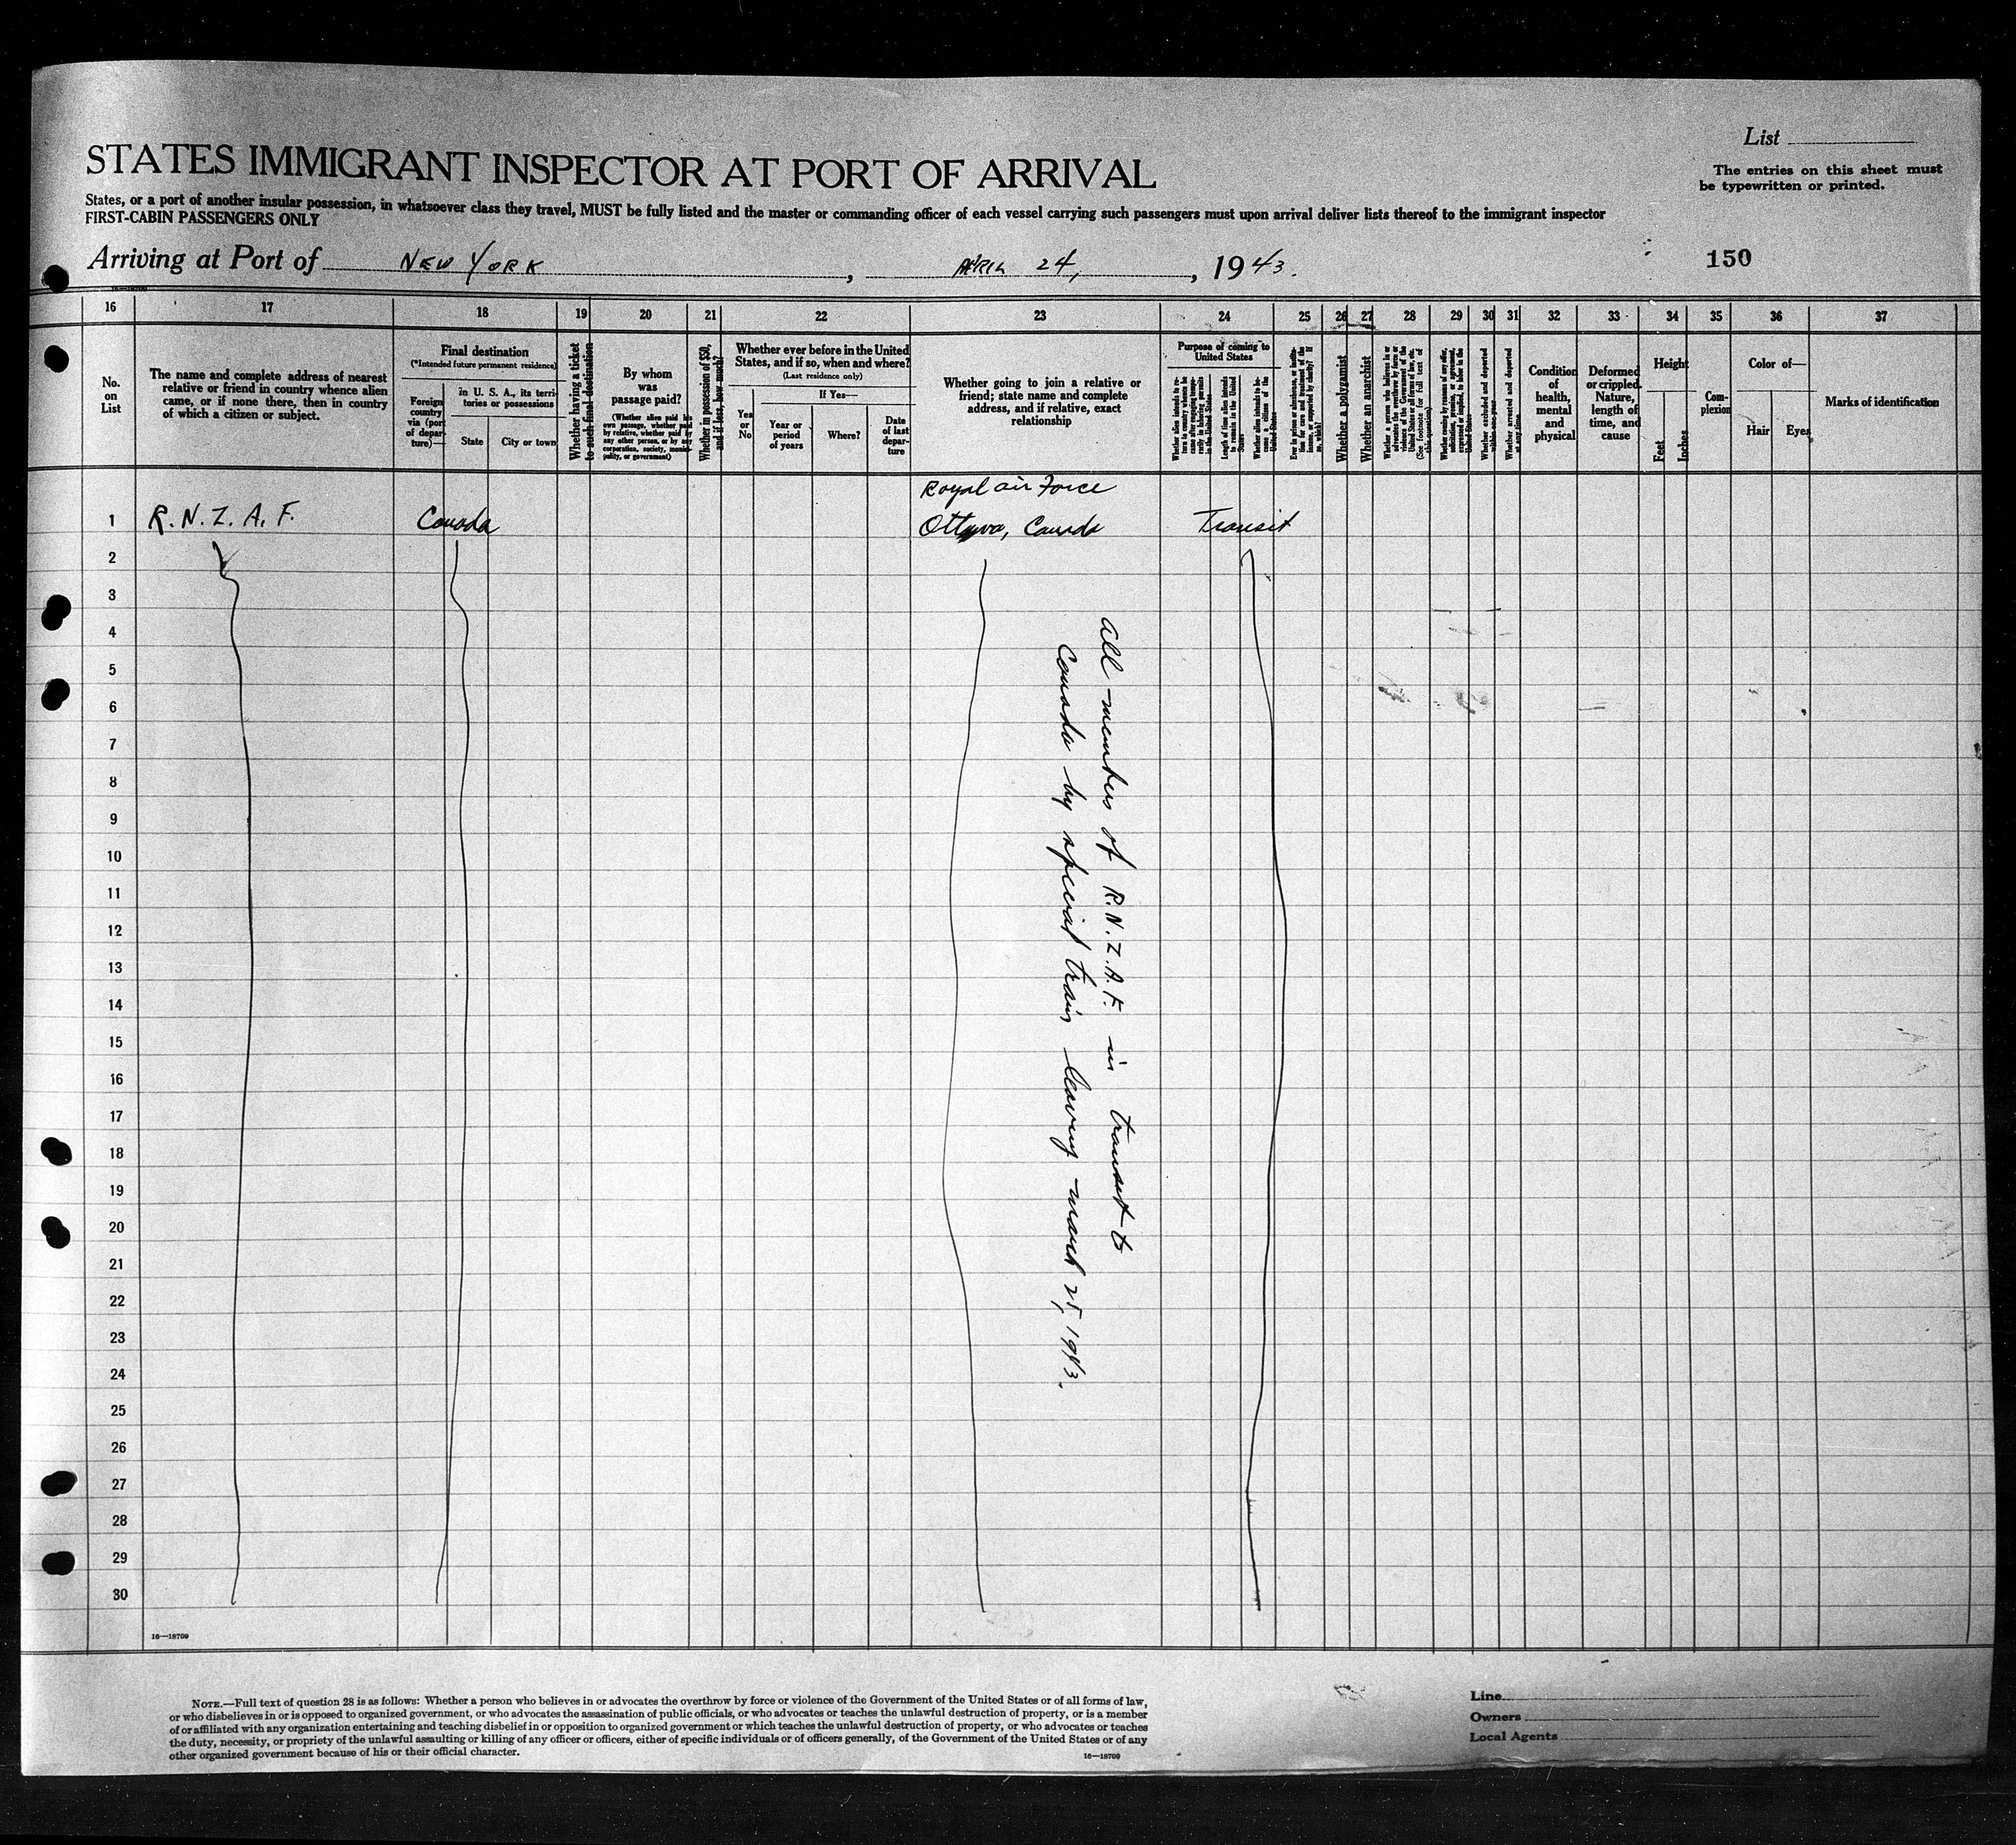 List
The entries on this sheet must
be typewritten or printed.
STATES IMMIGRANT INSPECTOR AT PORT OF ARRIVAL
States, or a port of another insular possession, in whatsoever class they travel, MUST be fully listed and the master or commanding officer of each vessel carrying such passengers must upon arrival deliver lists thereof to the immigrant inspector
FIRST-CABIN PASSENGERS ONLY
Arriving at Port of NEW YORK, APRIL 24, 1943.
150
16 17 18 19 20 21 22 23 24 25 26 27 28 29 30 31 32 33 34 35 36 37
No.
on
List
The name and complete address of nearest
relative or friend in country whence alien
came, or if none there, then in country
of which a citizen or subject.
Final destination
(*Intended future permanent residence)
Foreign
country
via (port
of depar-
ture)—
in U. S. A., its terri-
tories or possessions
State
City or town
Whether having a ticket
to such final destination
By whom
was
passage paid?
(Whether alien paid his
own passage, whether paid
by relative, whether paid by
any other person, or by any
corporation, society, munici-
pality, or government)
Whether in possession of $50,
and if less, how much?
Whether ever before in the United
States, and if so, when and where?
(Last residence only)
Yes
or
No
If Yes—
Year or
period
of years
Where?
Date
of last
depar-
ture
Whether going to join a relative or
friend; state name and complete
address, and if relative, exact
relationship
Purpose of coming to
United States
Length of time alien intends
to remain in the United
States
Whether alien intends to be-
come a citizen of the
United States
Whether a polygamist
Whether an anarchist
Whether arrested and deported
at any time
Condition
of
health,
mental
and
physical
Deformed
or crippled.
Nature,
length of
time, and
cause
Height
Feet
Inches
Com-
plexion
Color of—
Hair
Eyes
Marks of identification
Royal air Force
1 R. N. Z. A. F. Canada Ottawa, Canada Transit
2
3
4
5
6
7
8
9
10
11
12
13
14
15
16
17
18
19
20
21
22
23
24
25
26
27
28
29
30
all members of R.N.Z.A.F. in transit to
Canada by special train leaving march 25, 1943.
16—18709
NOTE.—Full text of question 28 is as follows: Whether a person who believes in or advocates the overthrow by force or violence of the Government of the United States or of all forms of law,
or who disbelieves in or is opposed to organized government, or who advocates the assassination of public officials, or who advocates or teaches the unlawful destruction of property, or is a member
of or affiliated with any organization entertaining and teaching disbelief in or opposition to organized government or which teaches the unlawful destruction of property, or who advocates or teaches
the duty, necessity, or propriety of the unlawful assaulting or killing of any officer or officers, either of specific individuals or of officers generally, of the Government of the United States or of any
other organized government because of his or their official character.
16—18709
Line
Owners
Local Agents